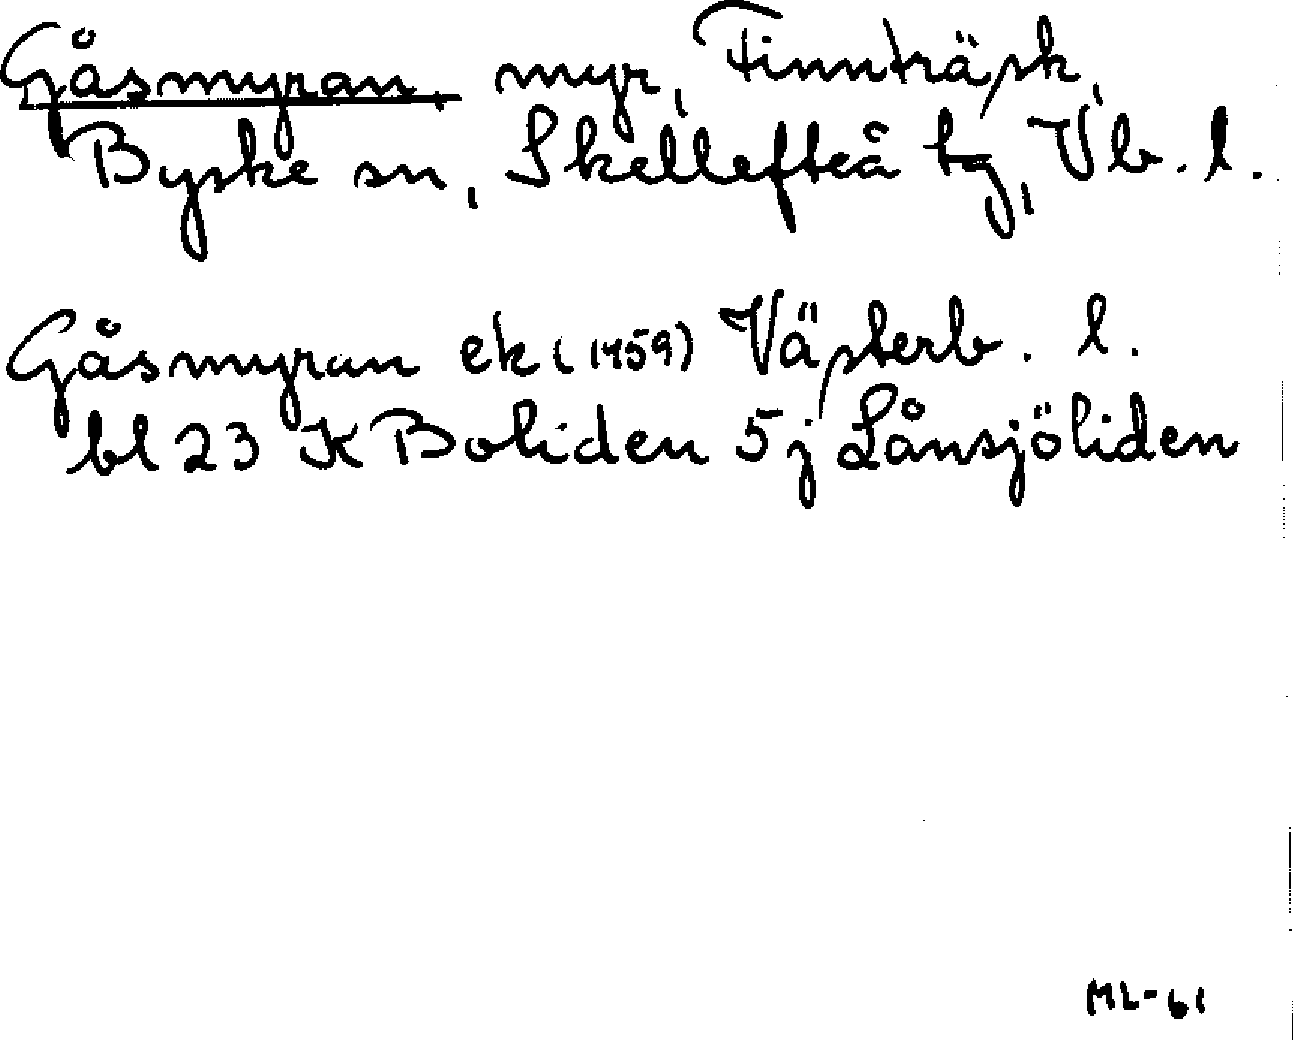 Gåsmyran, myr, Finnträsk,
Byske sn, Skellefteå tg, Vb. l.
Gåsmyran ek (1959) Västerb. l.
bl 23 K Boliden 5 j Långsjöliden
ML-61